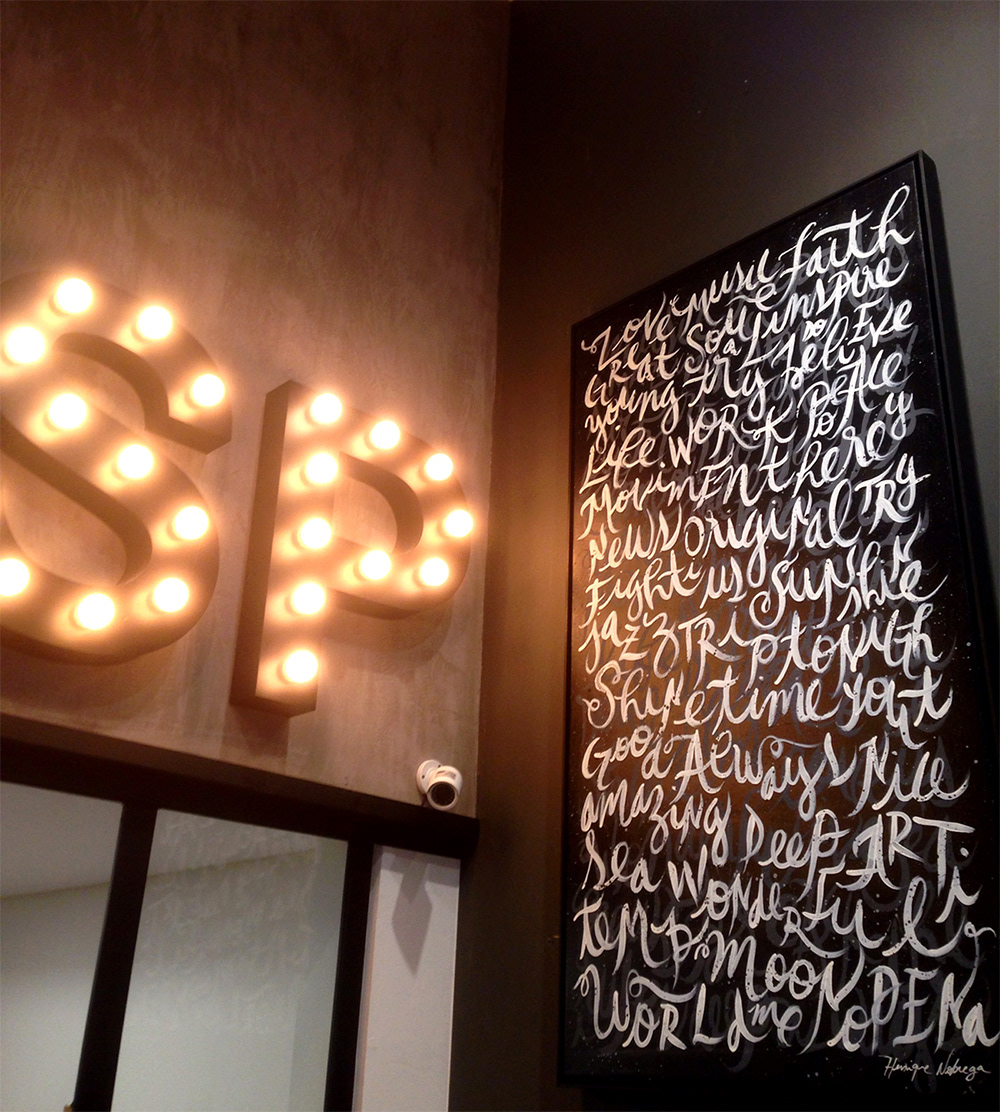 SP
Love music faith
Great Soul inspire
a do
young Try beliEve
Life WORK PEACE
MovimENt here
News Original TRy
Fight us Sunshine
jazz TRip tough
Shine time yout
Good Always Nice
amazing Deep ART
Sea WondeRful
temp MOON
WORLd me OPEN a
Henrique Nobrega